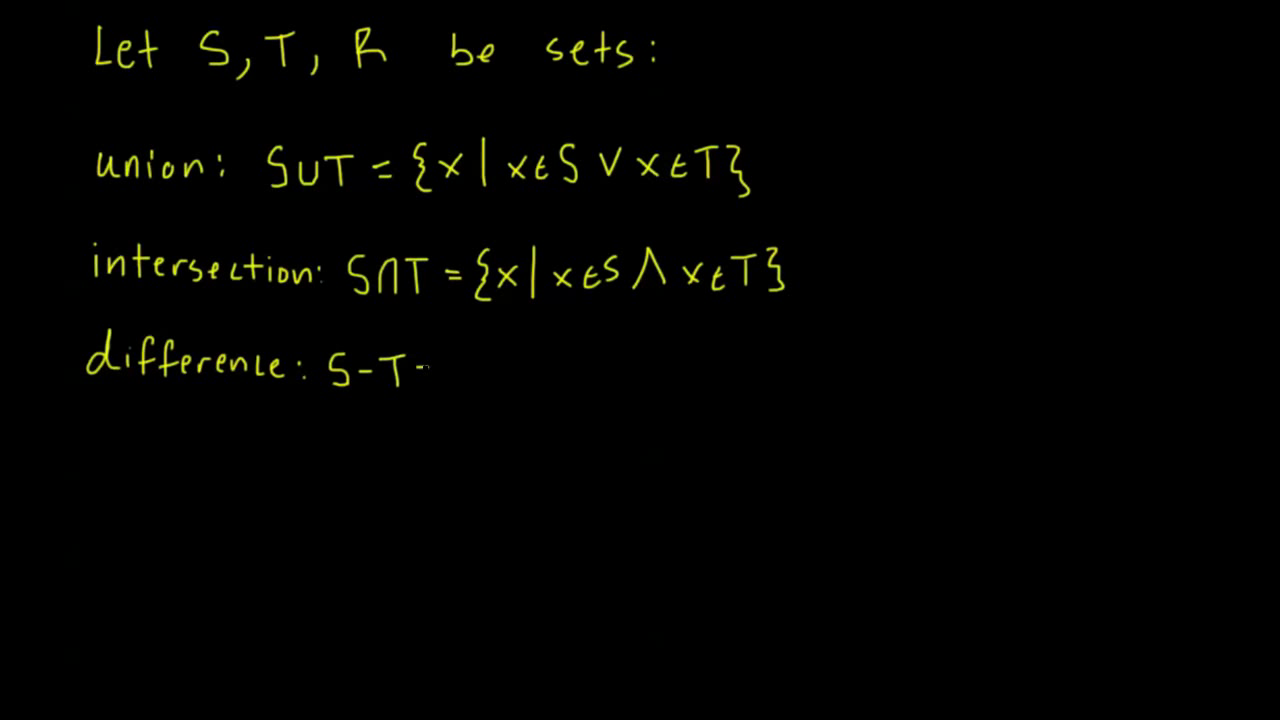 Let S, T, R be sets:
union: S∪T = {x | x∈S ∨ x∈T}
intersection: S∩T = {x | x∈S ∧ x∈T}
difference: S-T -